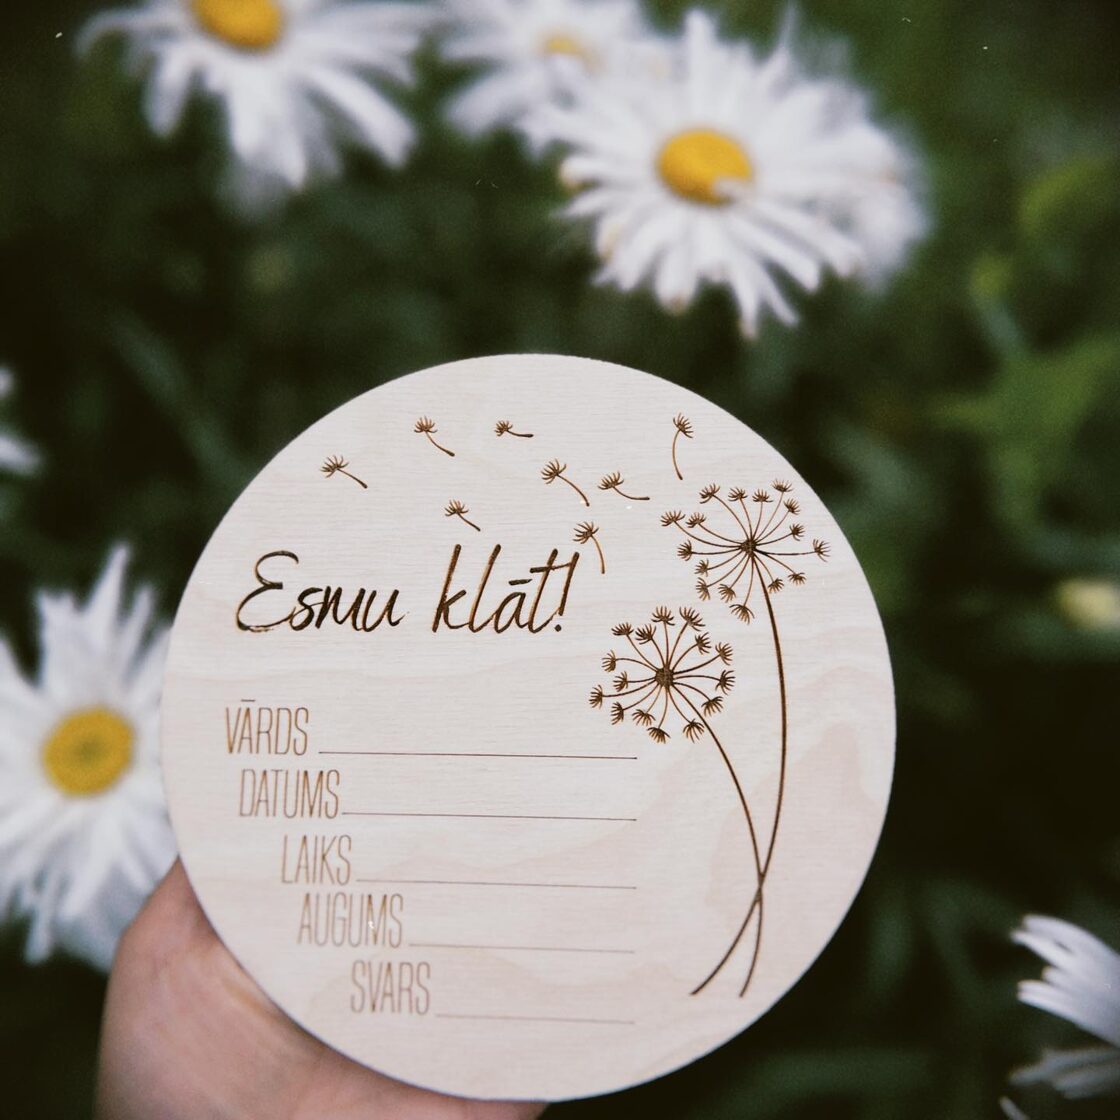 Esmu klāt!
VĀRDS
DATUMS
LAIKS
AUGUMS
SVARS